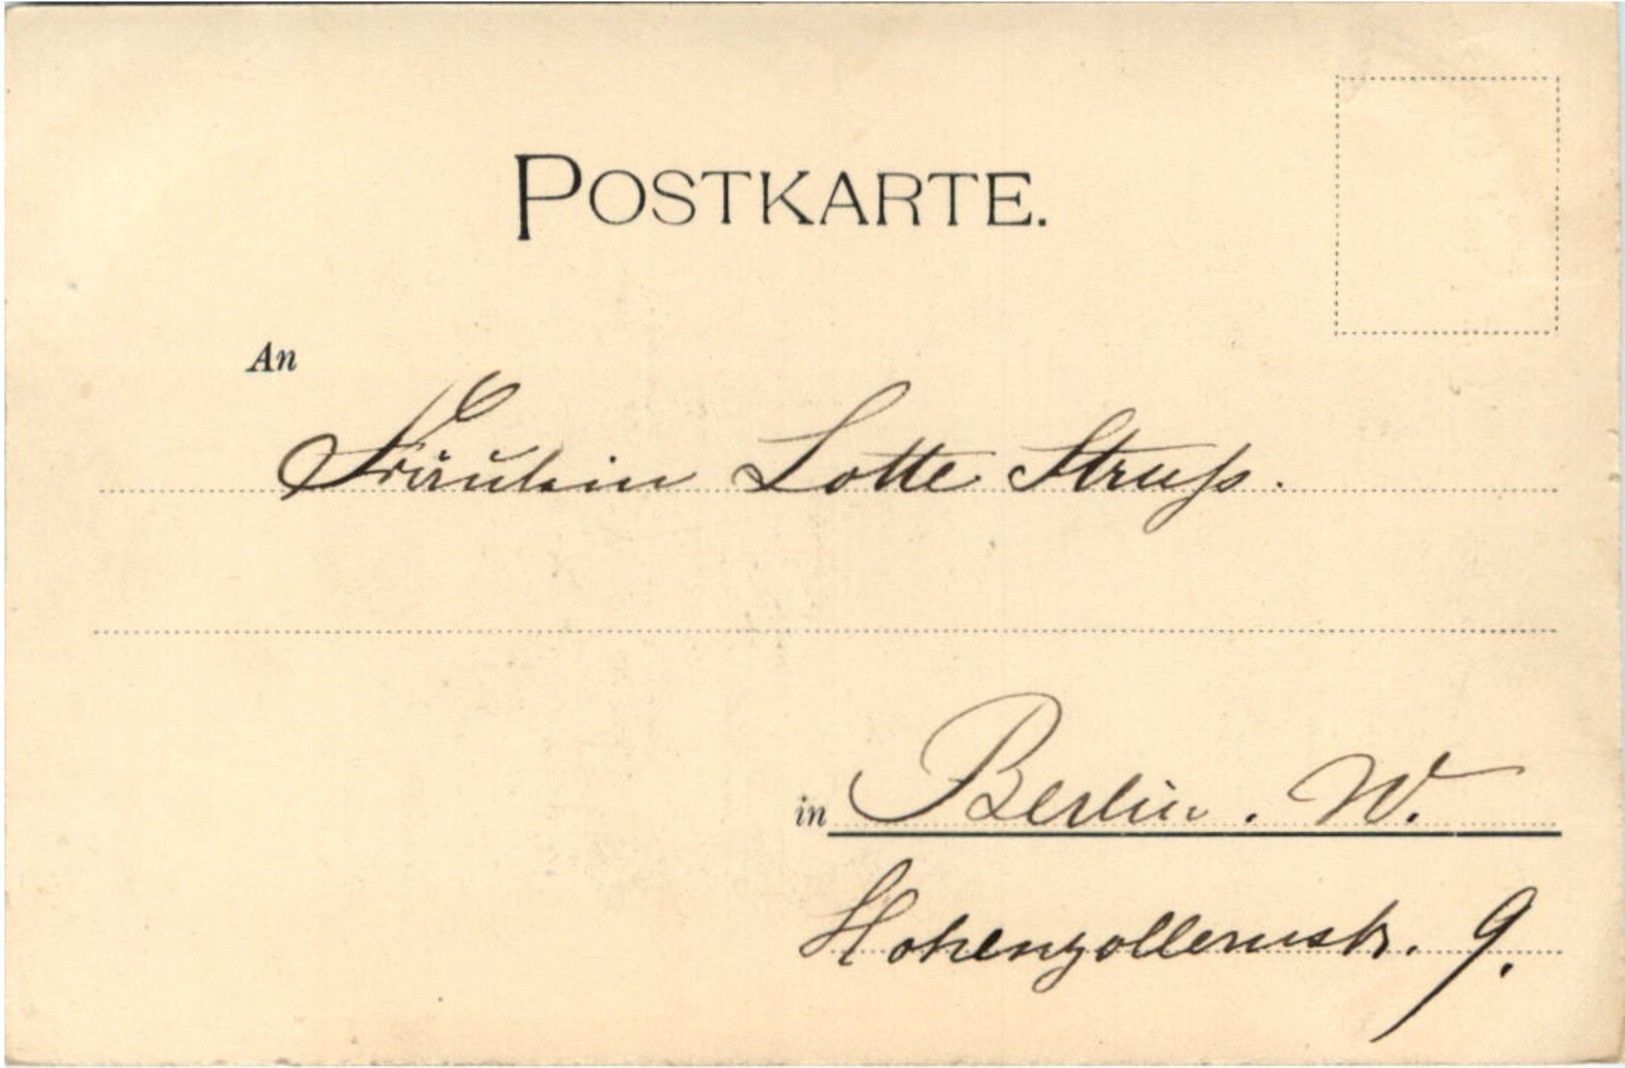 POSTKARTE.
An
Fräulein Lotte Struß.
in Berlin. W.
Hohenzollernstr. 9.